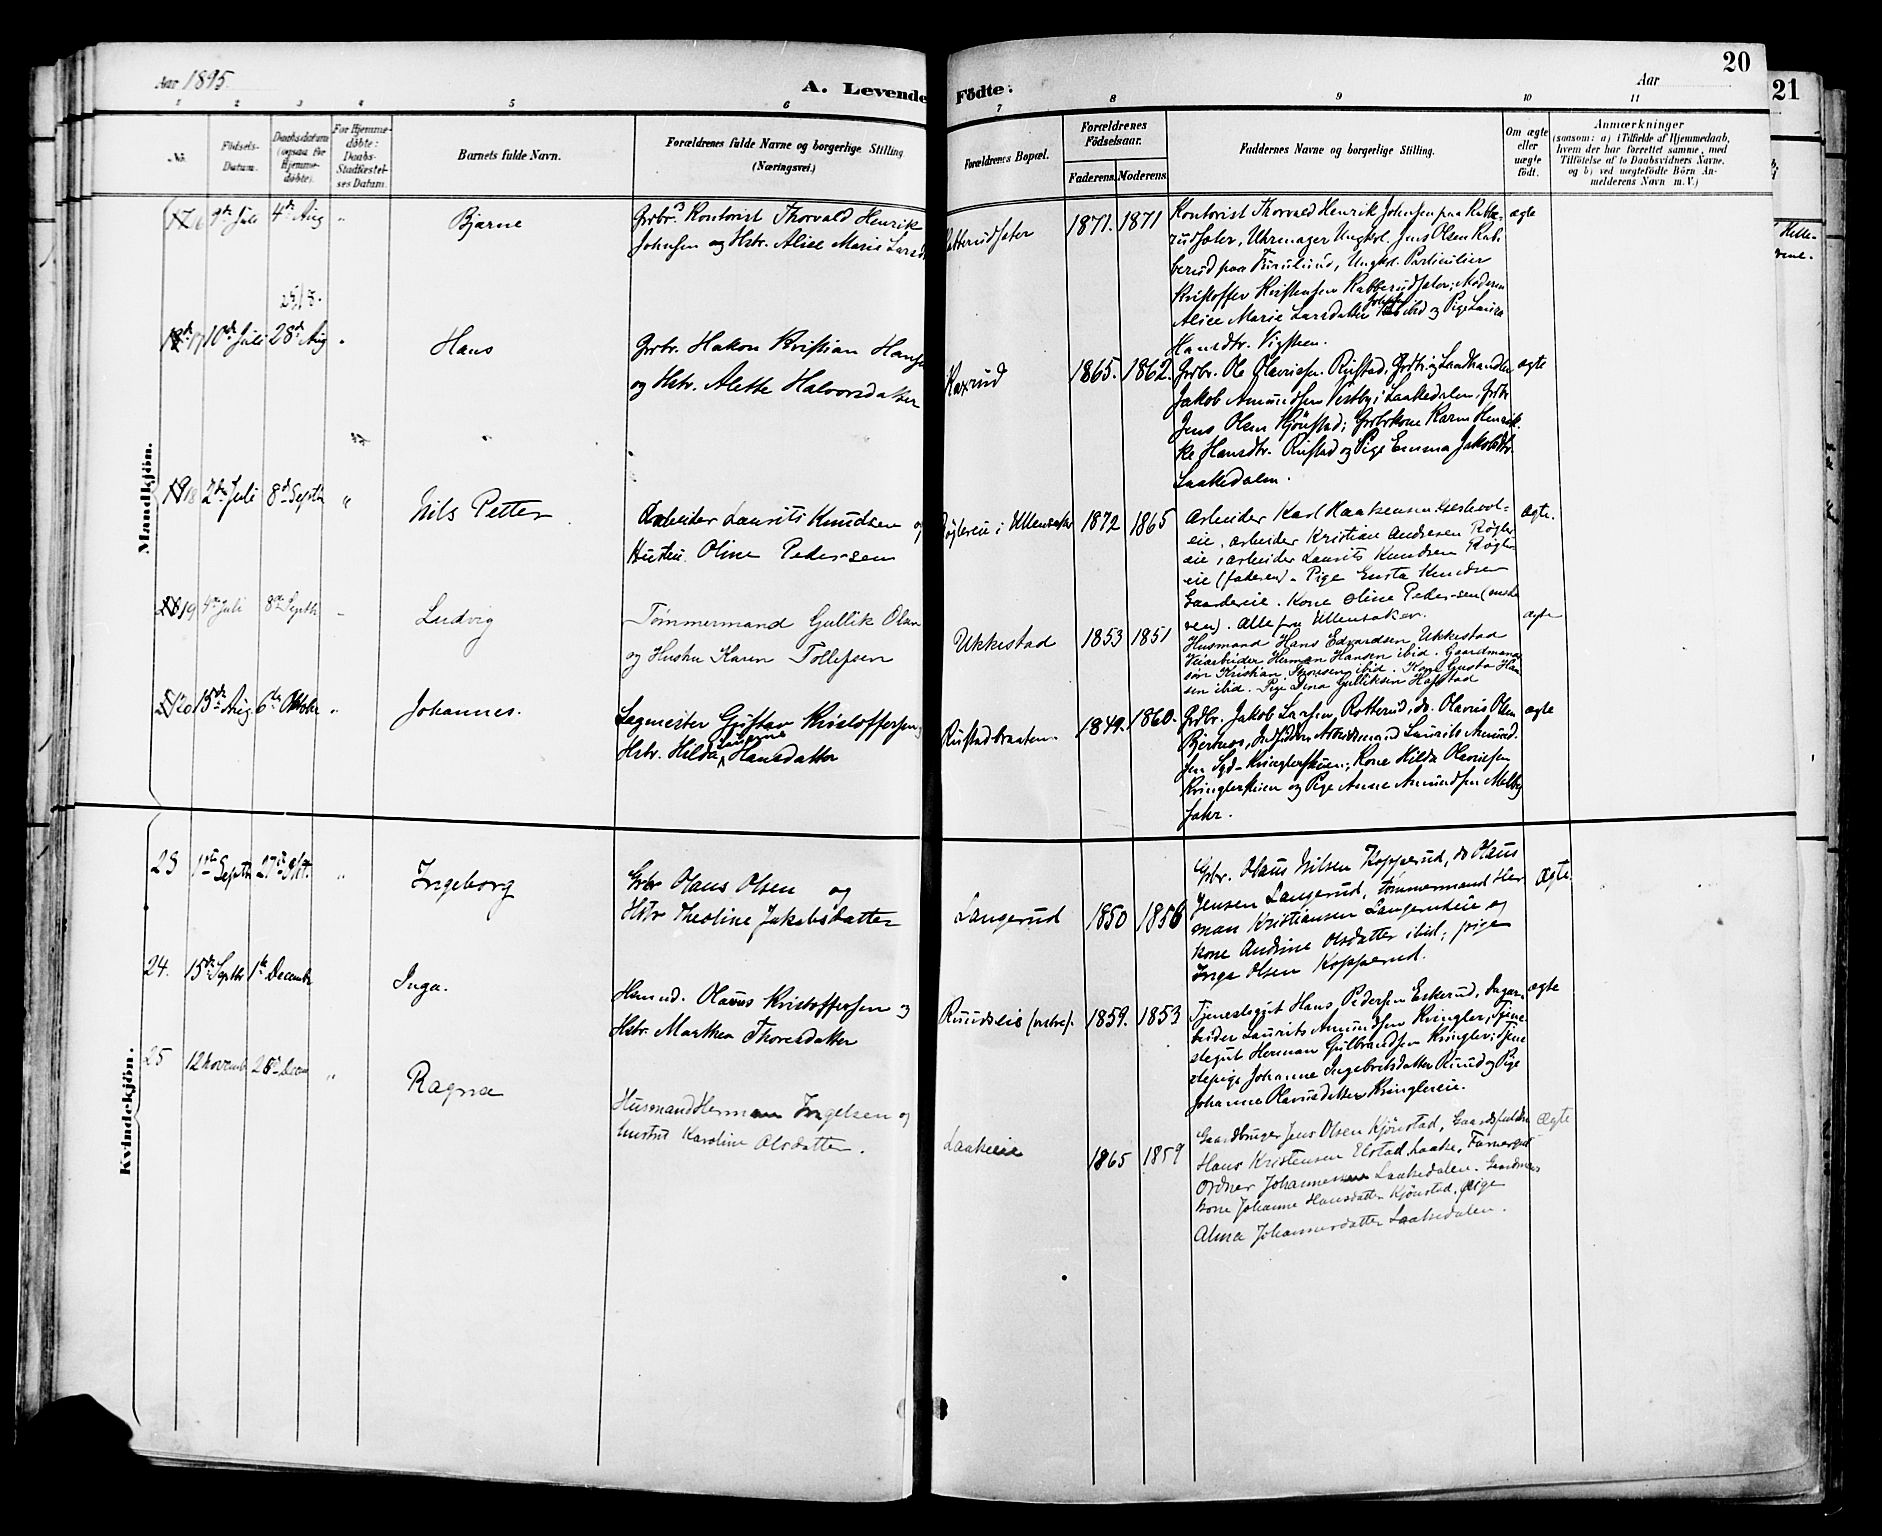 Aar 1895.
A. Levende Födte.
20
Aar
21
1 2 3 4 5 6 7 8 9 10 11
No.
Födsels-Datum.
Daabsdatum (ogsaa for Hjemme-döbte).
For Hjemme-döbte: Daabs-Stadfæstelses Datum.
Barnets fulde Navn.
Forældrenes fulde Navne og borgerlige Stilling (Næringsvei.)
Forældrenes Bopæl.
Forældrenes Födselsaar.
Faderens. Moderens.
Faddernes Navne og borgerlige Stilling.
Om ægte eller uægte födt.
Anmærkninger
(saasom: a) i Tilfælde af Hjemmedaab,
hvem der har forrettet samme, med
Tilföielse af to Daabsvidners Navne.
og b) ved uægtefödte Börn An-
melderens Navn m. V.)
Mandkjön.
16 9de Juli 4de Aug "
Bjarne
Grbr. Kontorist Thorvald Henrik
Johnsen og Hstr. Alice Marie Larsd
1871. 1871
Kontorist Thorvald Henrik Johnsen paa Rabbe-
rudsæter, Uhrmager Ungkl. Jens Olsen Rab-
berud paa Furulund, Ungkl. Particulier
Kristoffer Kristensen Rabberudsæter; Moderen
Alice Marie Larsdatter ibid og Pige Laura
Hansdtr. Vigsteen.
ægte
25/8.
17 10de Juli 28de Aug "
Hans
Grbr. Hakon Kristian Hansen
og Hstr. Alette Halvorsdatter
Kaxrud
1865. 1862.
Grbr. Ole Olavesen Rustad, Grbr. og Landhandler
Jakob Amundsen Vestby i Laakedalen, Grbr
Jens Olsen Kjönstad; Grbrkone Karen Henrik-
ke Hansdtr. Rustad og Pige Emma Jakobsdtr.
Laakedalen.
ægte
18 2den Juli 8de Septbr "
Nils Petter
Arbeider Laurits Knudsen og
Hustru Oline Pedersen
Røglereie i Ullensaker
1872 1865
Arbeider Karl Haakensen Gjeshool-
eie, arbeider Kristian Andersen Røgler
eie, arbeider Laurits Knudsen Røgler
eie (faderen). Pige Gusta Knudsen
Gaardereie. Kone Oline Pedersen (mode
ren). Alle fra Ullensaker.
ægte.
19 4de Juli 8de Septbr "
Ludvig
Tømmermand Gullik Olsen
og Hustru Karen Tollefsen
Ukkestad
1853 1851
Husmand Hans Edvardsen Ukkestad
Veiarbeider Herman Hansen ibid. Gaardmands
søn Kristian Thoresen ibid. Kone Gusta Han
sen ibid. Pige Dina Gulliksen Hofstad
ægte
20 15de Aug 6te Oktbr "
Johannes.
Sagmester Gustav Kristoffersen
Hstr. Hilda Laurine Hansdatter
Rustadbraaten.
1849. 1860.
Grdbr. Jakob Larsen Rotterud, do. Olavus Olsen
Bjertnes, Arbeidsmand Laurits Amund-
sen Syd-Kringlerskuen; Kone Hilda Olavesen
Kringlerskuen og Pige Anne Amundsen Melby
sæter.
ægte
Kvindekjön.
23 1ste Septbr 27de Okt. "
Ingeborg
Grbr Olaus Olsen og
Hstr Theoline Jakobsdatter
Langerud
1850 1856
Grbr. Olaus Nilsen Kopperud, do Olaus
Jensen Langerud, tømmermand Her
man Kristiansen Langerudeie og
kone Andrine Olsdatter ibid; pige
Inga Olsen Kopperud.
Ægte
24. 15de Septbr 1ste Decembr
Inga.
Husmd. Olavus Kristoffersen og
Hstr. Marthea Thoresdatter
Ruudseie (østre).
1859. 1853
Tjenestegut Hans Pedersen Eskerud, Dagar-
beider Laurits Amundsen Kringler, Tjene-
stegut Herman Gulbrandsen Kringler; Tjene
stepige Johanne Ingebretsdatter Ruud og Pige
Johanne Olavusdatter Kringlereie.
ægte
25 12 Novemb 26de Decem "
Ragna
Husmand Herman Ingelsen og
hustru Karoline Olsdatter.
Laakeeie
1865 1859
Gaardbruger Jens Olsen Kjönstad, Gaard
Hans Kristensen Elstad, Laake,
Ordner Johannessen Laakedalen. Gaardmands
kone Johanne Hansdatter Kjönstad, pige
Alma Johannesdatter Laakedalen.
Ægte